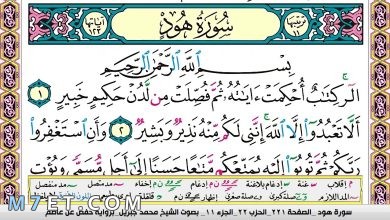 ترتيبها ١١
سُورَةُ هُود
آياتها ١٢٣
بِسْمِ ٱللَّهِ ٱلرَّحْمَٰنِ ٱلرَّحِيمِ
الٓر كِتَٰبٌ أُحْكِمَتْ ءَايَٰتُهُۥ ثُمَّ فُصِّلَتْ مِن لَّدُنْ حَكِيمٍ خَبِيرٍ ١
أَلَّا تَعْبُدُوٓا۟ إِلَّا ٱللَّهَ إِنَّنِى لَكُم مِّنْهُ نَذِيرٌ وَبَشِيرٌ ٢ وَأَنِ ٱسْتَغْفِرُوا۟
رَبَّكُمْ ثُمَّ تُوبُوٓا۟ إِلَيْهِ يُمَتِّعْكُم مَّتَٰعًا حَسَنًا إِلَىٰٓ أَجَلٍ مُّسَمًّى وَيُؤْتِ
إقلاب غنة إدغام إدغام بلاغنة إدغام إخفاء مد منفصل مد متصل
M7ET.COM
سورة هود _الصفحة ٢٢١_ الحزب ٢٢_الجزء ١١_ بصوت الشيخ محمد جبريل_ برواية حفص عن عاصم